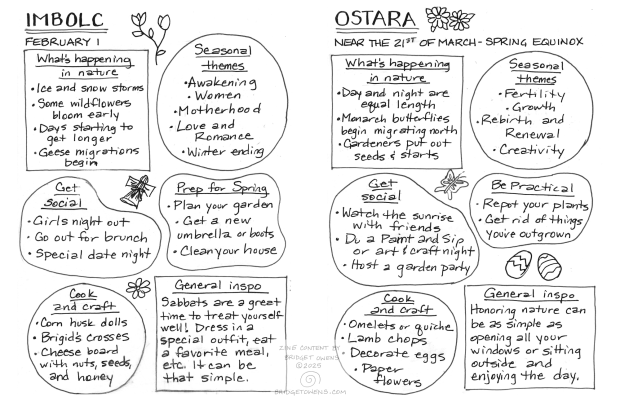 IMBOLC
FEBRUARY 1
What's happening
in nature
• Ice and snow storms
• Some wildflowers
bloom early
• Days starting to
get longer
• Geese migrations
begin
Seasonal
themes
• Awakening
• Women
• Motherhood
• Love and
Romance
• Winter ending
Get
social
• Girls night out
• Go out for brunch
• Special date night
Prep for Spring
• Plan your garden
• Get a new
umbrella or boots
• Clean your house
Cook
and craft
• Corn husk dolls
• Brigid's crosses
• Cheese board
with nuts, seeds,
and honey
General inspo
Sabbats are a great
time to treat yourself
well! Dress in a
special outfit, eat
a favorite meal,
etc. It can be
that simple.
OSTARA
NEAR THE 21ST OF MARCH - SPRING EQUINOX
What's happening
in nature
• Day and night are
equal length
• Monarch butterflies
begin migrating north
• Gardeners put out
seeds & starts
Seasonal
themes
• Fertility
• Growth
• Rebirth and
Renewal
• Creativity
Get
social
• Watch the sunrise
with friends
• Do a Paint and Sip
or art & craft night
• Host a garden party
Be Practical
• Repot your plants
• Get rid of things
you're outgrown
Cook
and craft
• Omelets or quiche
• Lamb chops
• Decorate eggs
• Paper
flowers
General inspo
Honoring nature can
be as simple as
opening all your
windows or sitting
outside and
enjoying the day.
ZINE CONTENT BY
BRIDGET OWENS
©2025
BRIDGETOWENS.COM